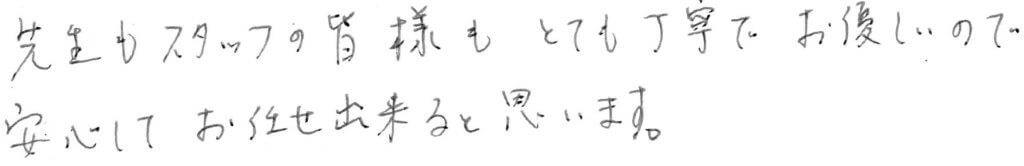 先生もスタッフの皆様も とても丁寧で お優しいので
安心して お任せ出来ると思います。